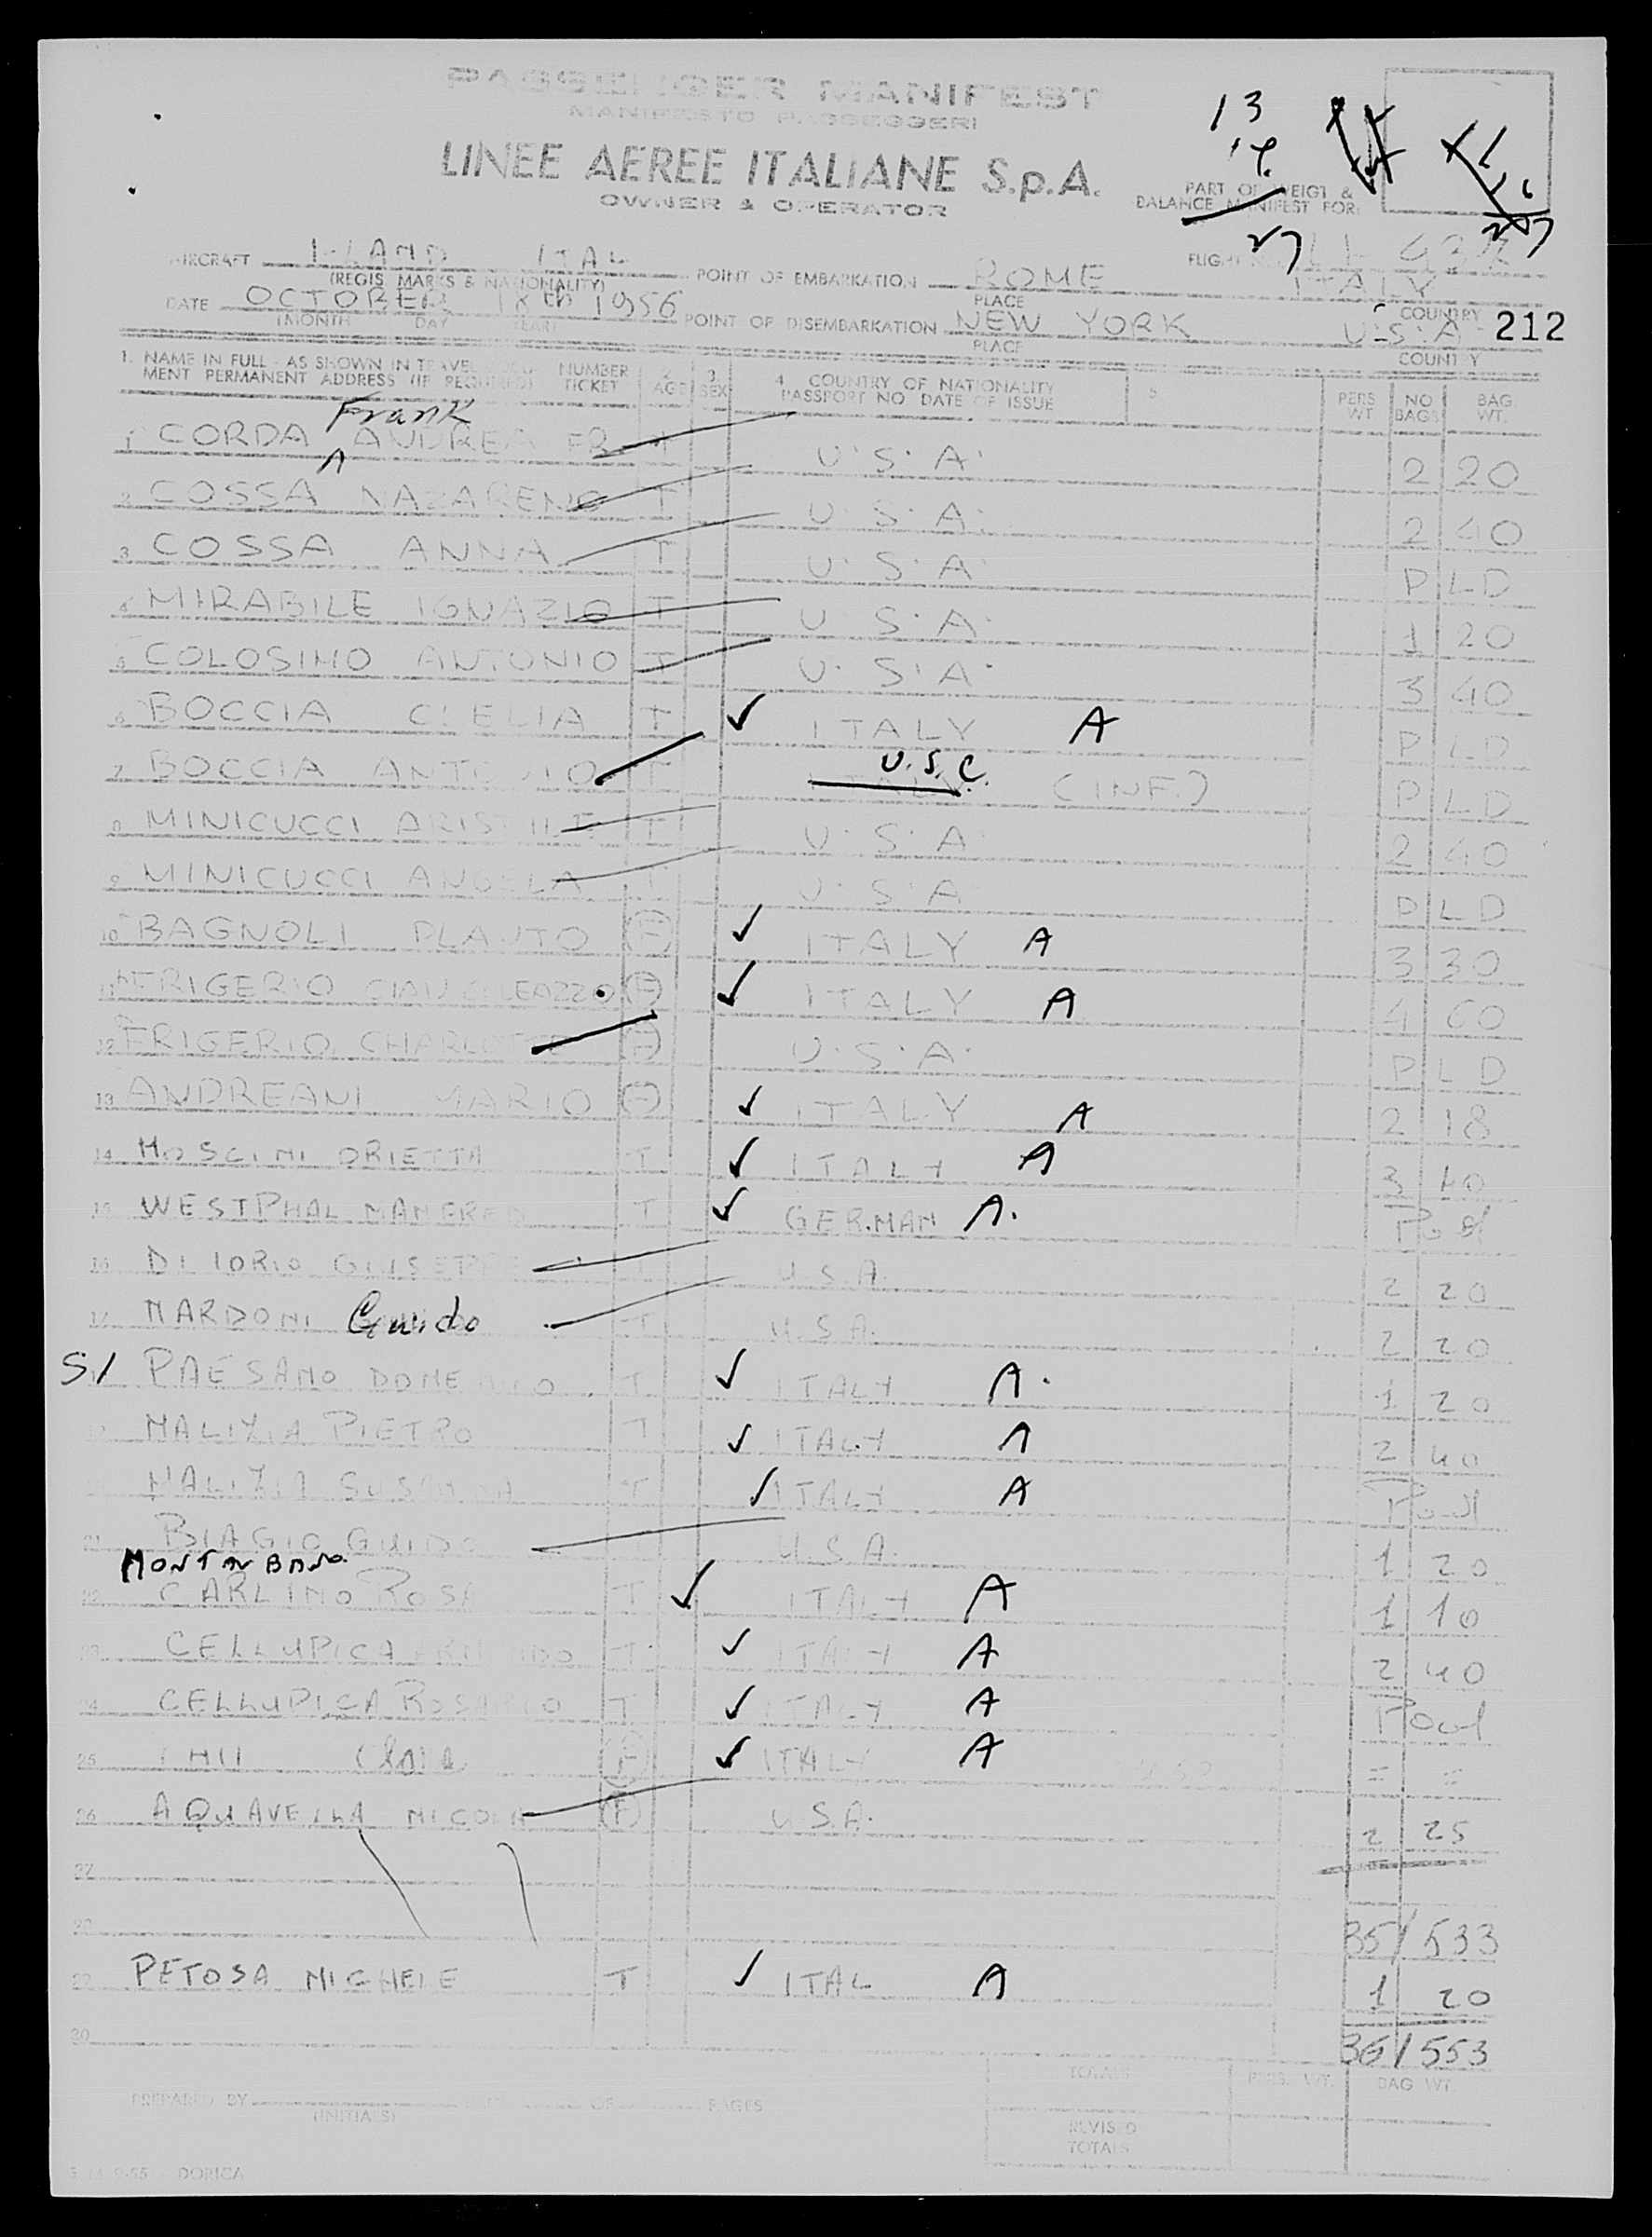 PASSENGER MANIFEST
MANIFESTO PASSEGGERI
LINEE AEREE ITALIANE S.p.A.
OWNER & OPERATOR
13
14
27
PART OF WEIGT &
BALANCE MANIFEST FOR:
AIRCRAFT I-LAND ITAL
(REGIS MARKS & NATIONALITY)
POINT OF EMBARKATION ROME ITALY
PLACE COUNTRY
FLIGHT LI
DATE OCTOBER 18TH 1956
(MONTH DAY YEAR)
POINT OF DISEMBARKATION NEW YORK U.S.A. 212
PLACE COUNTRY
1. NAME IN FULL - AS SHOWN IN TRAVEL DOCU- NUMBER 2 3 4 COUNTRY OF NATIONALITY 5 PERS NO BAG
MENT PERMANENT ADDRESS (IF REQUIRED) TICKET AGE SEX PASSPORT NO DATE OF ISSUE WT BAGS WT.
Frank
1 CORDA ANDREA FR U.S.A. 2 20
2 COSSA NAZARENO T U.S.A. 2 40
3 COSSA ANNA T U.S.A. PLD
4 MIRABILE IGNAZIO T U.S.A. 1 20
5 COLOSIMO ANTONIO T U.S.A. 3 40
6 BOCCIA CLELIA T ✓ ITALY A PLD
U.S.C.
7 BOCCIA ANTONIO ITALY (INF.) PLD
8 MINICUCCI T U.S.A 2 40
9 MINICUCCI ANGELA T U.S.A PLD
10 BAGNOLI PLAUTO F ✓ ITALY A 3 30
11 FRIGERIO F ✓ ITALY A 4 60
12 FRIGERIO CHARLOTTE F U.S.A. PLD
13 ANDREANI MARIO F ✓ ITALY A 2 18
14 MOSCINI ORIETTA T ✓ ITALY A 3 40
15 WESTPHAL MANFRED T ✓ GERMAN A. Pod
16 DI IORIO GIUSEPPE T U.S.A. 2 20
17 NARDONI Guido T U.S.A. 2 20
PAESANO DOMENICO T ✓ ITALY A. 1 20
19 MALIZIA PIETRO T ✓ ITALY A 2 40
MALIZIA SUSANNA T ✓ ITALY A
21 BIAGIO GUIDO U.S.A. 1 20
MONTANBANO
22 CARLINO ROSA T ✓ ITALY A 1 10
23 CELLUPICA T ✓ ITALY A 2 40
24 CELLUPICA ROSARIO T ✓ ITALY A
25 F ✓ ITALY A = =
26 AQUAVELLA NICOLA F U.S.A. 2 25
27
28 35/533
29 PETOSA MICHELE T ✓ ITAL A 1 20
30 36/553
TOTALS PERS. WT. BAG WT.
PREPARED BY OF PAGES
(INITIALS)
REVISED
TOTALS
DORICA